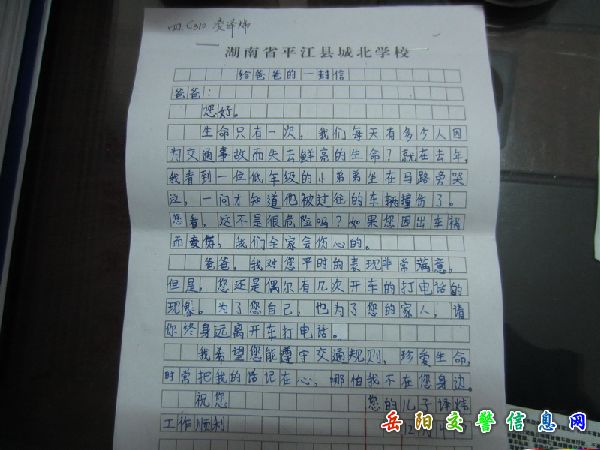 湖南省平江县城北学校
给爸爸的一封信
爸爸:
您好。
生命只有一次,我们每天有多少人因
为交通事故而失去鲜亮的生命?就在去年,
我看到一位低年级的小弟弟坐在马路旁哭
泣,一问才知道他被过往的车辆撞伤了。
您看,这不是很危险吗?如果您因出车祸
而 我们全家会伤心的。
爸爸,我对您平时的表现非常满意,
但是,您还是偶尔有几次开车的打电话的
现象。为了您自己,也为了您的家人,请
你终身远离开车打电话。
我希望您能遵守交通规则,珍爱生命。
时常把我的话记在心,哪怕我不在您身边。
祝您 您的儿子译
工作顺利
岳阳交警信息网